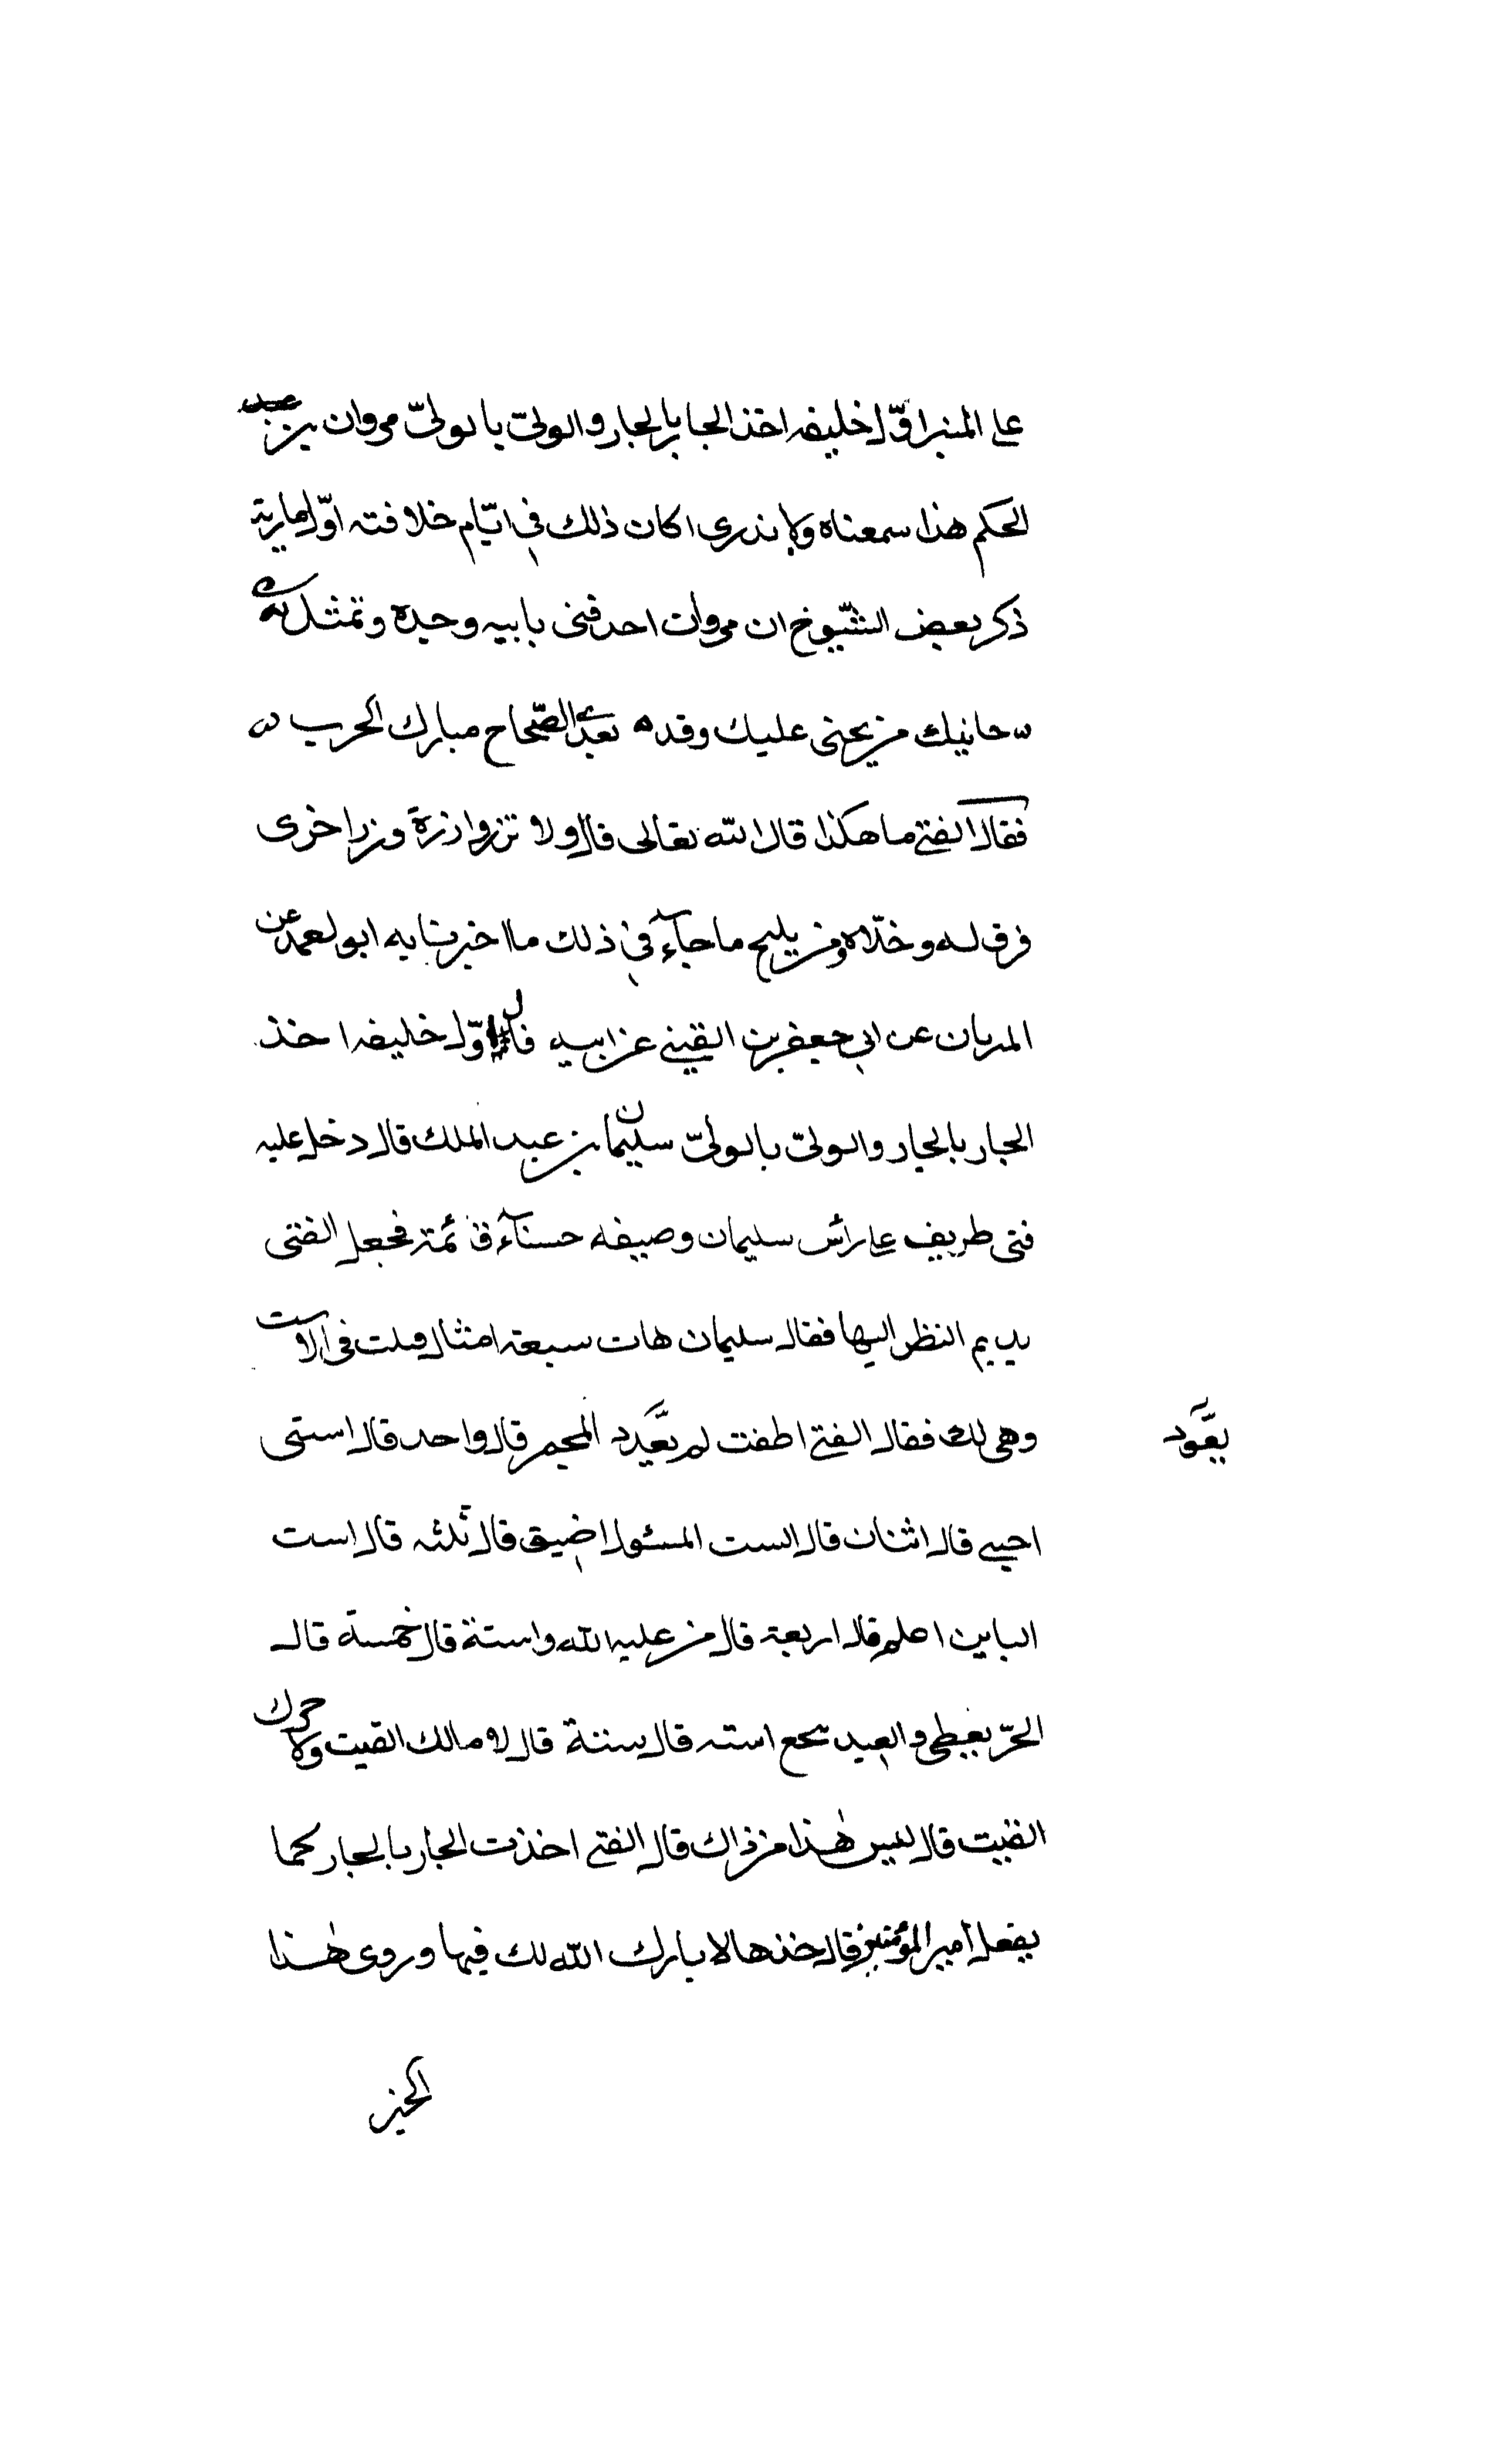 على المنبر اوّل خليفه اخذ الجار بالجار والولىّ بالولىّ مروان بن
الحكم هذا سمعناه ولا ندرى اكان ذلك فى ايّام خلافته اوّل
ذكر بعض الشّيوخ ان مروان اخذ فتى بابيه وحده وتمثل
جانيك من يجنى عليك وقد ه تعدى الصّحاح مبارك الجرب
فقال الفتى ما هكذا قال الله تعالى قال ولا تزر وازرة وزر اخرى
فرق له وخلّاه ومن مليح ما جآء فى ذلك ما اخبرنا به ابو احمد عن
عن ابى جعفر بن القينى عن ابيه قال اوّل خليفه اخذ
الجار بالجار والولىّ بالولىّ سليمان بن عبد الملك قال دخل عليه
فتى ظريف على رأس سليمان وصيفه حسنآء قائمة فجعل الفتى
يديم النظر اليها فقال سليمان هات سبعة امثال قيلت فى الاست
وهى لك فقال الفتى است لم تعوّد المجمر قال واحد قال استى
يعوّد
اخبثى قال اثنان قال است المسئول اضيق قال ثلثه قال است
الباين اعلم قال اربعة قال من عليه الله واستة قال خمسة قال
الحرّ يعطى والعبد يجع استه قال ستة قال لا مالك ابقيت ولا حرك
انقيت قال ليس هذا من ذاك قال الفتى اخذت الجار بالجار كما
يفعل امير المؤمنين قال خذها لا بارك الله لك فيها وروى هذا
الخبر